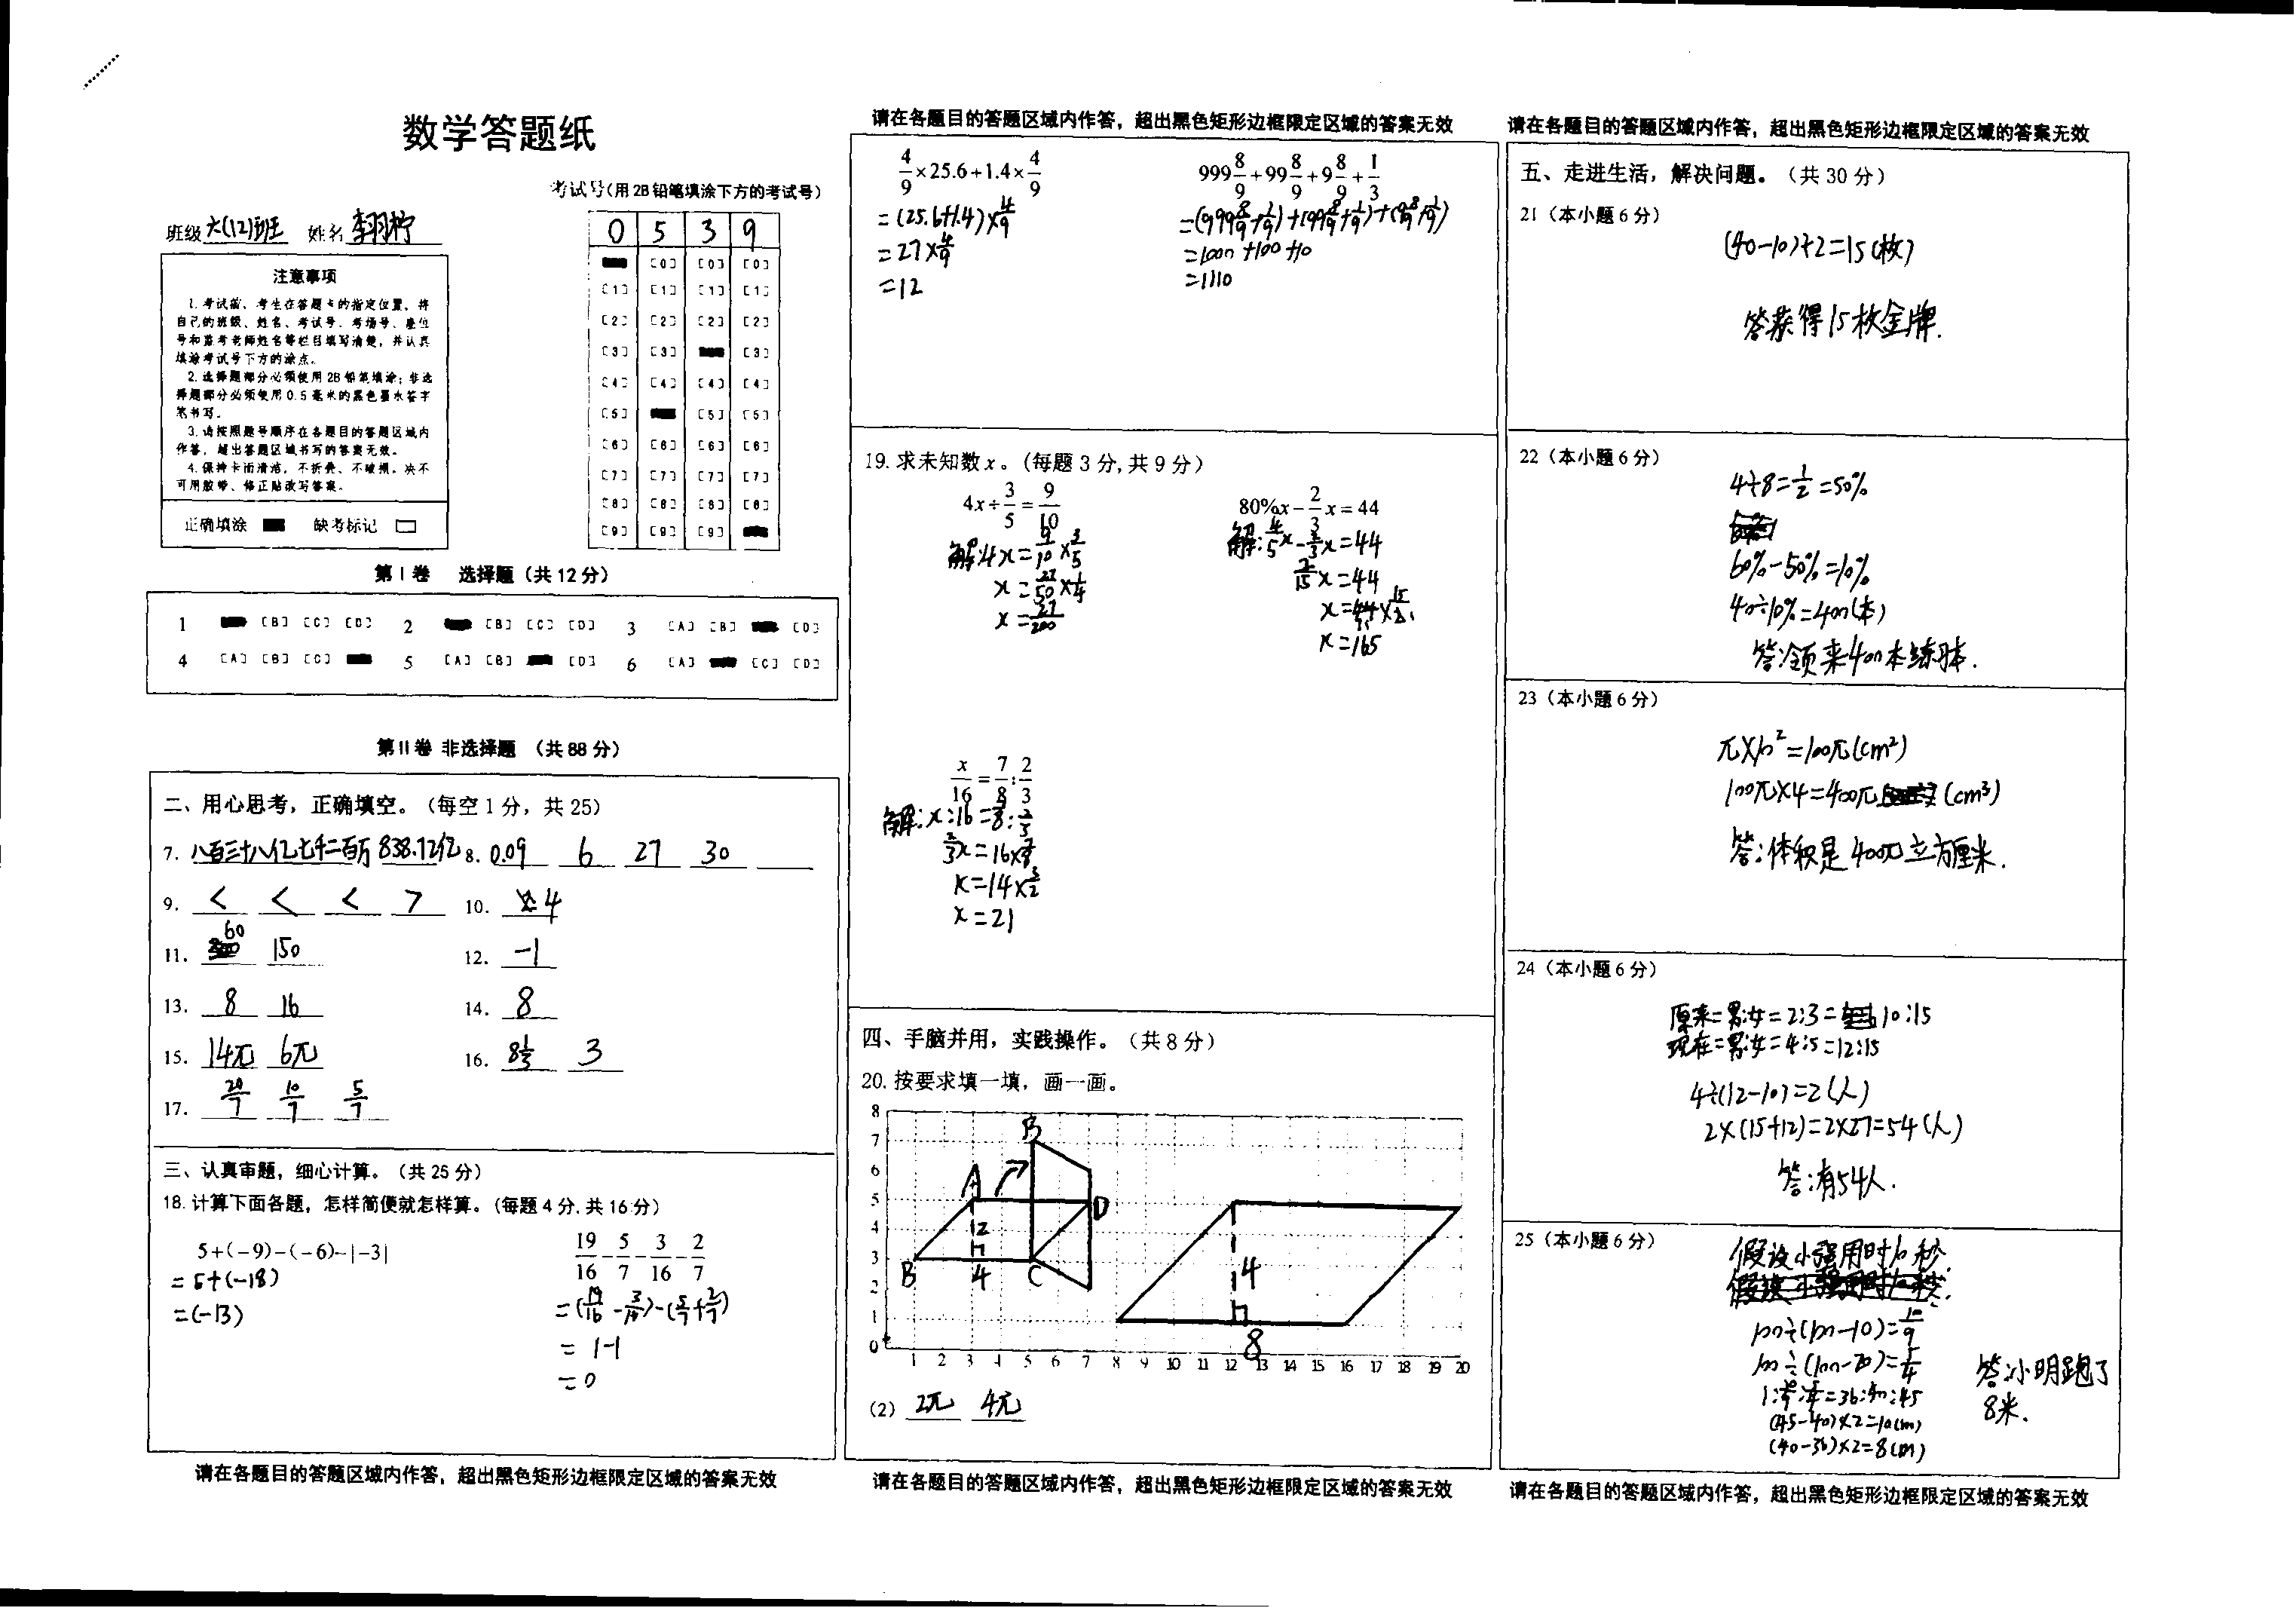 数学答题纸
考试号(用2B铅笔填涂下方的考试号)
班级 六(12)班 姓名
0 5 3 9
注意事项
1.考试前、考生在答题卡的指定位置、将
自己的班级、姓名、考试号、考场号、座位
号和监考老师姓名等栏目填写清楚,并认真
填涂考试号下方的涂点。
2.选择题部分必须使用2B铅笔填涂;非选
择题部分必须使用0.5毫米的黑色墨水签字
笔书写。
3.请按照题号顺序在各题目的答题区域内
作答,超出答题区域书写的答案无效。
4.保持卡面清洁,不折叠、不破损。决不
可用胶带、修正贴改写答案。
正确填涂 缺考标记
[0] [0] [0]
[1] [1] [1] [1]
[2] [2] [2] [2]
[3] [3] [3]
[4] [4] [4] [4]
[5] [5] [5]
[6] [6] [6] [6]
[7] [7] [7] [7]
[8] [8] [8] [8]
[9] [9] [9]
第Ⅰ卷 选择题(共12分)
1 [B] [C] [D] 2 [B] [C] [D] 3 [A] [B] [D]
4 [A] [B] [C] 5 [A] [B] [D] 6 [A] [C] [D]
第Ⅱ卷 非选择题 (共88分)
二、用心思考,正确填空。(每空1分,共25)
7. 八百三十八亿七千二百万 838.72亿 8. 0.09 6 27 30
9. < < < > 10. 4
11. 60 150 12. -1
13. 8 16 14. 8
15. 14π 6π 16. 8 1/3 3
17. 20/7 10/7 5/7
三、认真审题,细心计算。(共25分)
18.计算下面各题,怎样简便就怎样算。(每题4分,共16分)
5+(-9)-(-6)-|-3|
=5+(-18)
=(-13)
19/16-5/7-3/16-2/7
=(19/16-3/16)-(5/7+2/7)
=1-1
=0
请在各题目的答题区域内作答,超出黑色矩形边框限定区域的答案无效
请在各题目的答题区域内作答,超出黑色矩形边框限定区域的答案无效
4/9×25.6+1.4×4/9
=(25.6+1.4)×4/9
=27×4/9
=12
999 8/9+99 8/9+9 8/9+1/3
=(999 8/9+1/9)+(99 8/9+1/9)+(9 8/9+1/9)
=1000+100+10
=1110
19.求未知数x。(每题3分,共9分)
4x÷3/5=9/10
解:4x=9/10×3/5
x=27/50×1/4
x=27/200
80%x-2/3x=44
解:4/5x-2/3x=44
2/15x=44
x=44×15/2
x=165
x/16=7/8:2/3
解:x:16=7/8:2/3
2/3x=16×7/8
x=14×3/2
x=21
四、手脑并用,实践操作。(共8分)
20.按要求填一填,画一画。
8
7
6
5
4
3
2
1
0
1 2 3 4 5 6 7 8 9 10 11 12 13 14 15 16 17 18 19 20
B
A
D
2
B 4 C
4
8
(2) 2π 4π
请在各题目的答题区域内作答,超出黑色矩形边框限定区域的答案无效
请在各题目的答题区域内作答,超出黑色矩形边框限定区域的答案无效
五、走进生活,解决问题。(共30分)
21(本小题6分)
(40-10)÷2=15(枚)
答获得15枚金牌.
22(本小题6分)
4÷8=1/2=50%
60%-50%=10%
40÷10%=400(本)
答:领来400本练习本.
23(本小题6分)
π×10²=100π(cm²)
100π×4=400π(cm³)
答:体积是400π立方厘米.
24(本小题6分)
原来=男:女=2:3=10:15
现在=男:女=4:5=12:15
4÷(12-10)=2(人)
2×(15+12)=2×27=54(人)
答:有54人.
25(本小题6分)
假设小强用时10秒.
100÷(100-10)=10/9
100÷(100-20)=5/4
1:10/9:5/4=36:40:45
(45-40)×2=10(m)
(40-36)×2=8(m)
答:小明跑了
8米.
请在各题目的答题区域内作答,超出黑色矩形边框限定区域的答案无效